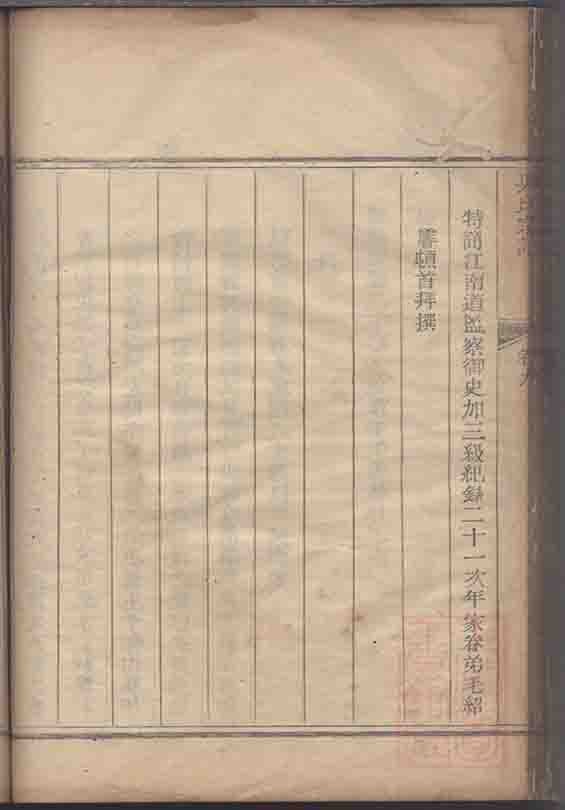 卷九
特簡江南道監察御史加三級紀錄二十一次年家眷弟毛紹
頓首拜撰